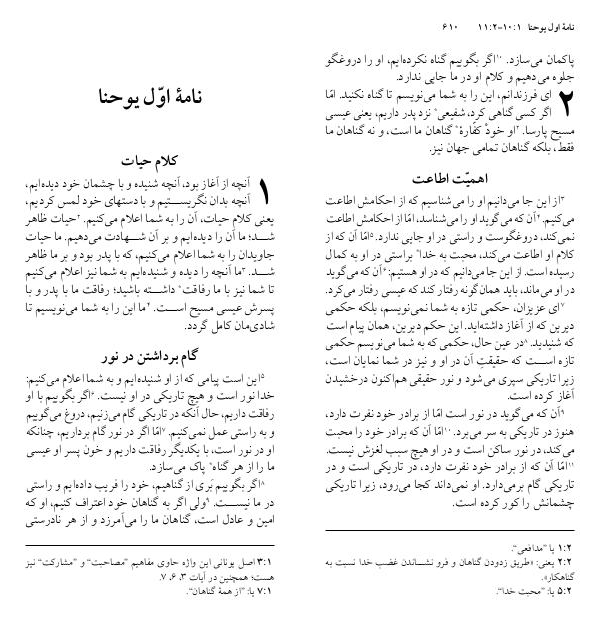 نامۀ اوّل یوحنا
کلام حیات
۱ آنچه از آغاز بود، آنچه شنیده و با چشمان خود دیده‌ایم،
آنچه بدان نگریستیم و با دستهای خود لمس کردیم،
یعنی کلام حیات، آن را به شما اعلام می‌کنیم. ۲حیات ظاهر
شد؛ ما آن را دیده‌ایم و بر آن شهادت می‌دهیم. ما حیات
جاویدان را به شما اعلام می‌کنیم، که با پدر بود و بر ما ظاهر
شد. ۳ما آنچه را دیده و شنیده‌ایم به شما نیز اعلام می‌کنیم
تا شما نیز با ما رفاقت* داشته باشید؛ رفاقت ما با پدر و با
پسرش عیسی مسیح است. ۴ما این را به شما می‌نویسیم تا
شادی‌مان کامل گردد.
گام برداشتن در نور
۵این است پیامی که از او شنیده‌ایم و به شما اعلام می‌کنیم:
خدا نور است و هیچ تاریکی در او نیست. ۶اگر بگوییم با او
رفاقت داریم، حال آنکه در تاریکی گام می‌زنیم، دروغ می‌گوییم
و به راستی عمل نمی‌کنیم. ۷امّا اگر در نور گام برداریم، چنانکه
او در نور است، با یکدیگر رفاقت داریم و خون پسر او عیسی
ما را از هر گناه* پاک می‌سازد.
۸اگر بگوییم بَری از گناهیم، خود را فریب داده‌ایم و راستی
در ما نیست. ۹ولی اگر به گناهان خود اعتراف کنیم، او که
امین و عادل است، گناهان ما را می‌آمرزد و از هر نادرستی
۳:۱ اصل یونانی این واژه حاوی مفاهیم ”مصاحبت“ و ”مشارکت“ نیز
هست؛ همچنین در آیات ۳، ۶، ۷.
۷:۱ یا: ”از همۀ گناهان“.
نامۀ اول یوحنا ۱۰:۱-۱۱:۲ ۶۱۰
پاکمان می‌سازد. ۱۰اگر بگوییم گناه نکرده‌ایم، او را دروغگو
جلوه می‌دهیم و کلام او در ما جایی ندارد.
۲ ای فرزندانم، این را به شما می‌نویسم تا گناه نکنید. امّا
اگر کسی گناهی کرد، شفیعی* نزد پدر داریم، یعنی عیسی
مسیح پارسا. ۲او خودْ کفّارۀ* گناهان ما است، و نه گناهان ما
فقط، بلکه گناهان تمامی جهان نیز.
اهمیّت اطاعت
۳از این جا می‌دانیم او را می‌شناسیم که از احکامش اطاعت
می‌کنیم. ۴آن که می‌گوید او را می‌شناسد، امّا از احکامش اطاعت
نمی‌کند، دروغگوست و راستی در او جایی ندارد. ۵امّا آن که از
کلام او اطاعت می‌کند، محبت به خدا* براستی در او به کمال
رسیده است. از این جا می‌دانیم که در او هستیم: ۶آن که می‌گوید
در او می‌ماند، باید همان‌گونه رفتار کند که عیسی رفتار می‌کرد.
۷ای عزیزان، حکمی تازه به شما نمی‌نویسم، بلکه حکمی
دیرین که از آغاز داشته‌اید. این حکم دیرین، همان پیام است
که شنیدید. ۸در عین حال، حکمی که به شما می‌نویسم حکمی
تازه است که حقیقتِ آن در او و نیز در شما نمایان است،
زیرا تاریکی سپری می‌شود و نور حقیقی هم‌اکنون درخشیدن
آغاز کرده است.
۹آن که می‌گوید در نور است امّا از برادر خود نفرت دارد،
هنوز در تاریکی به سر می‌برد. ۱۰امّا آن که برادر خود را محبت
می‌کند، در نور ساکن است و در او هیچ سبب لغزش نیست.
۱۱امّا آن که از برادر خود نفرت دارد، در تاریکی است و در
تاریکی گام برمی‌دارد. او نمی‌داند کجا می‌رود، زیرا تاریکی
چشمانش را کور کرده است.
۱:۲ یا ”مدافعی“.
۲:۲ یعنی: «طریق زدودن گناهان و فرو نشاندن غضب خدا نسبت به
گناهکار».
۵:۲ یا: ”محبت خدا“.